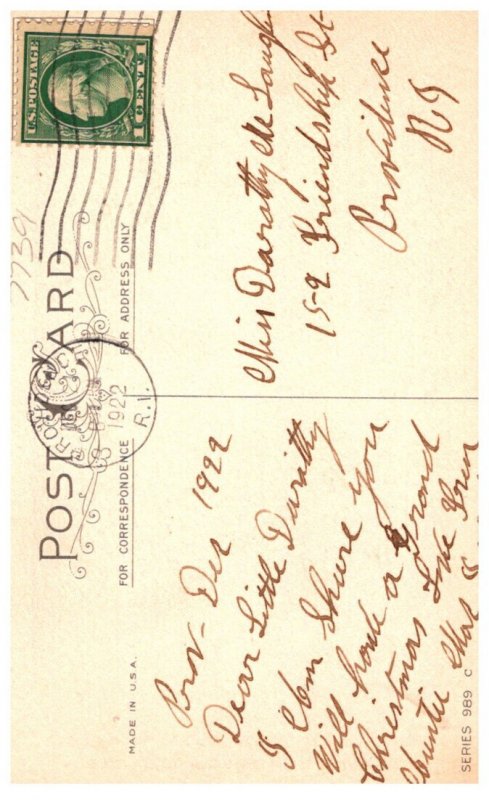 POST CARD
FOR CORRESPONDENCE
FOR ADDRESS ONLY
U.S. POSTAGE
1 CENT 1
PROVIDENCE
1922
R.I.
7739
MADE IN U.S.A.
Prov- Dec 1922
Dear Little Duritty
I Am Shure you
Will have a Grand
Christmas Love From
Auntie
Miss Dorothy Mc Laugh
152 Friendship St
Providence
RI
SERIES 989 C